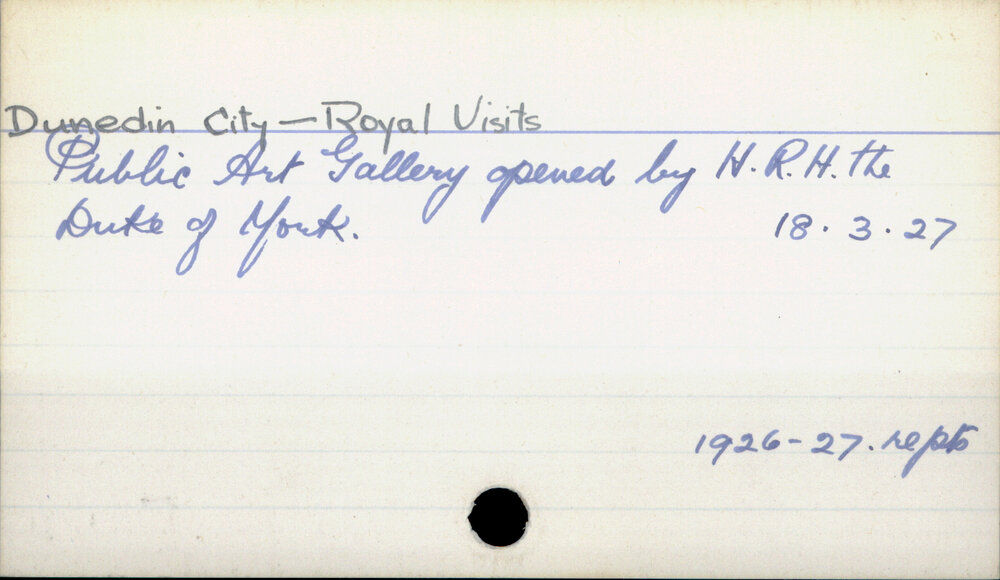 Dunedin City — Royal Visits
Public Art Gallery opened by H.R.H. the
Duke of York. 18.3.27
1926-27. repts